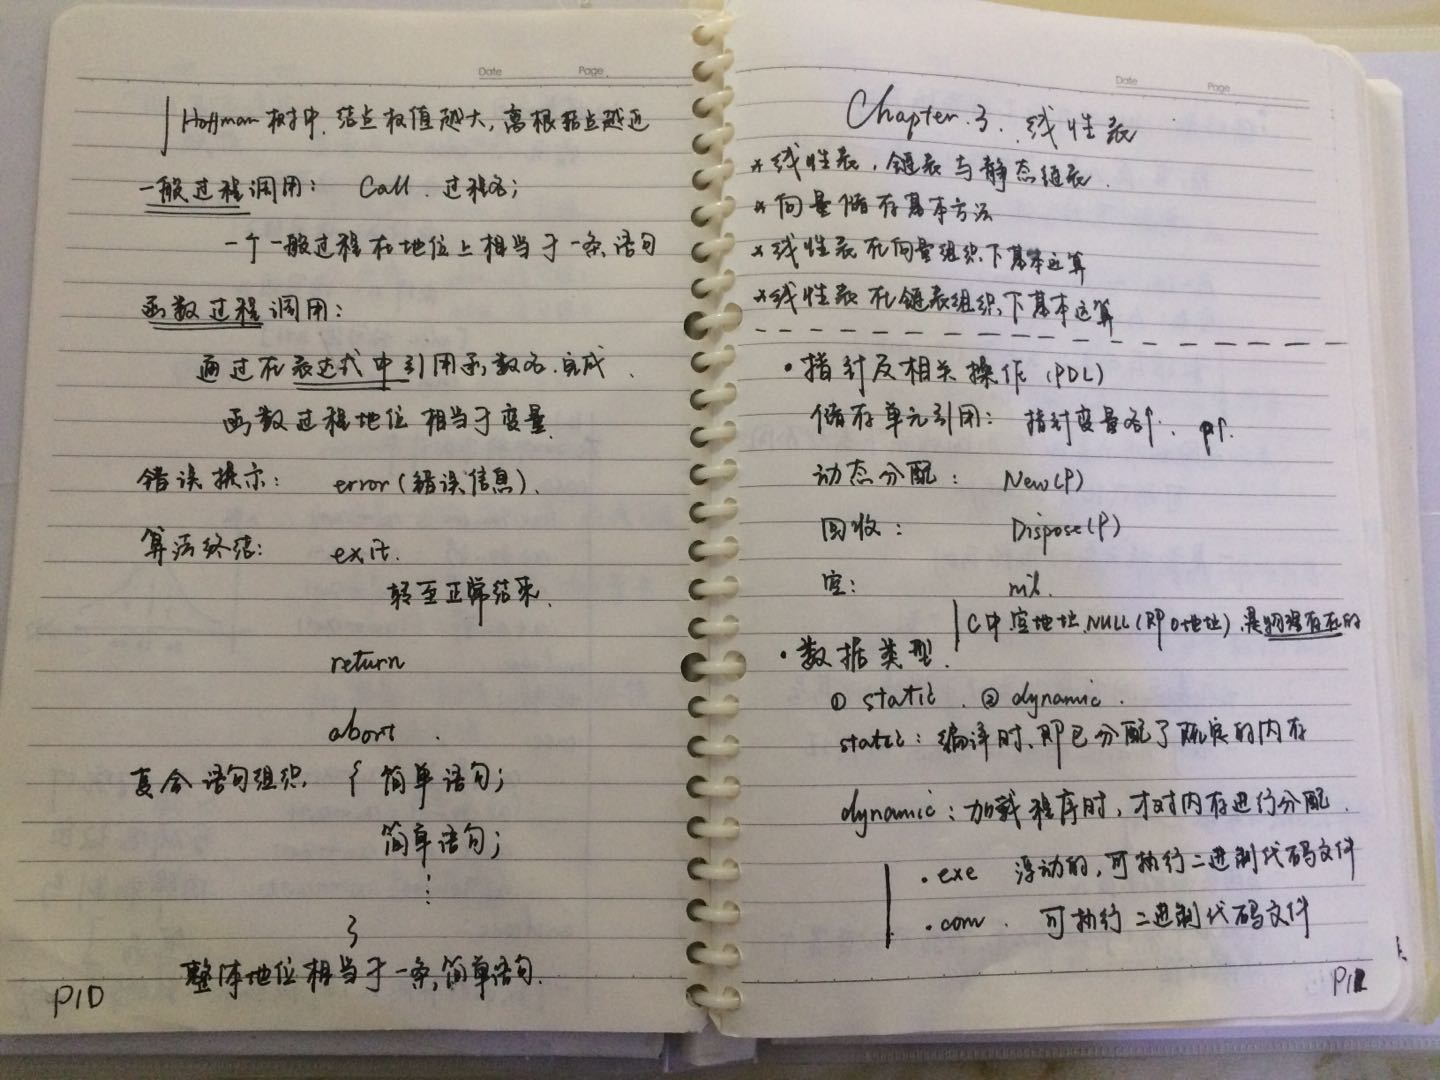 Date Page
Hoffman 树中, 结点权值越大, 离根结点越近
一般过程调用: Call 过程名;
一个一般过程在地位上相当于一条语句
函数过程调用:
通过在表达式中引用函数名完成.
函数过程地位相当于变量.
错误提示: error(错误信息).
算法终结: exit.
转至正常结束.
return
abort.
复合语句组织 { 简单语句;
简单语句;
⋮
}
整体地位相当于一条简单语句.
P10
Date Page
Chapter.3. 线性表
*线性表, 链表与静态链表.
*向量储存基本方法
*线性表在向量组织下基本运算
*线性表在链表组织下基本运算
•指针及相关操作 (PDL)
储存单元引用: 指针变量名↑. p↑.
动态分配: New(P)
回收: Dispose(P)
空: nil.
C中空地址NULL(即0地址), 是物理存在的
•数据类型.
① static. ② dynamic.
static: 编译时, 即已分配了确定的内存
dynamic: 加载程序时, 才对内存进行分配.
.exe 浮动的, 可执行二进制代码文件
.com. 可执行二进制代码文件